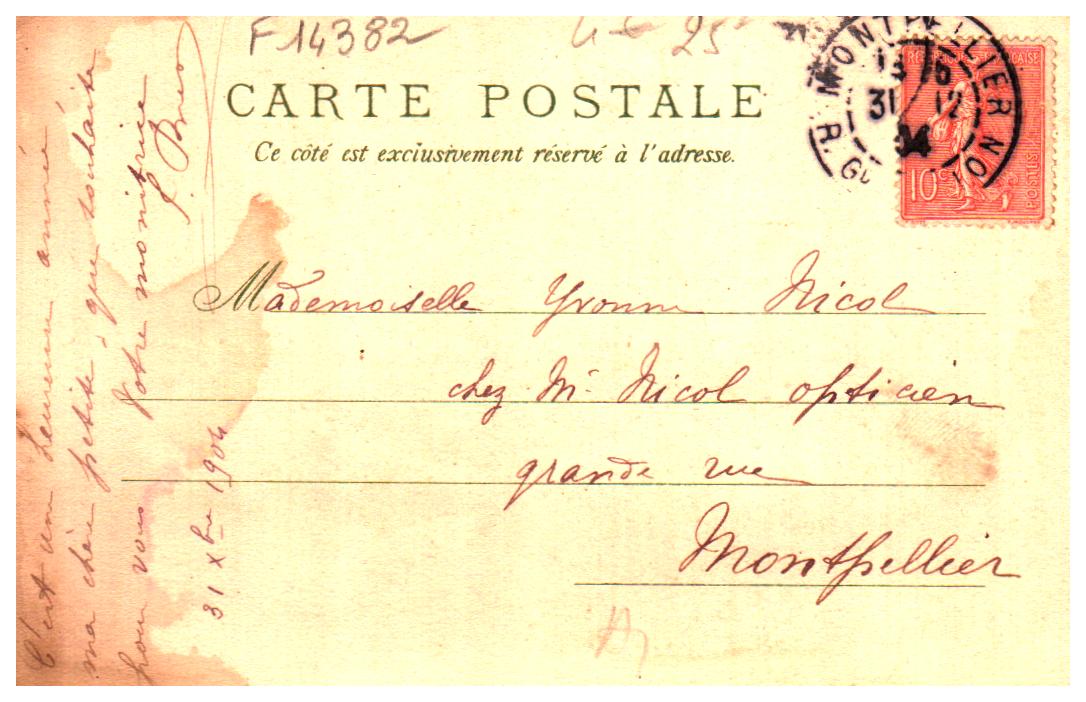 F 14382
4 - 25
CARTE POSTALE
Ce côté est exclusivement réservé à l'adresse.
MONTPELLIER NON
R. G
15 15
31 12
04
RÉPUBLIQUE FRANÇAISE
10c
POSTES
Mademoiselle Yvonne Nicol
chez Mr Nicol opticien
grande rue
Montpellier
C'est une heureuse année
ma chère petite, que souhaite
pour vous Votre monitrice
31 Xbre 1904